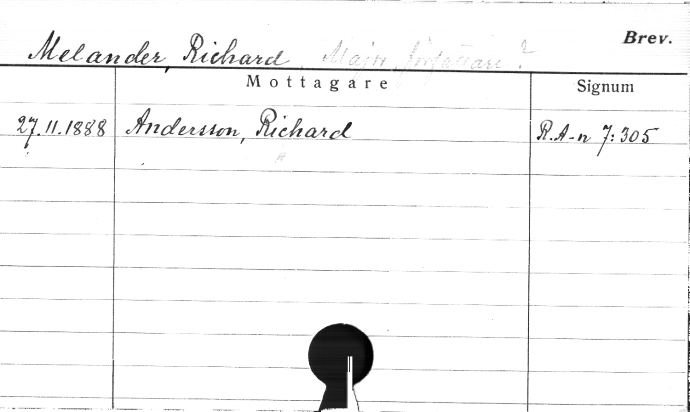 Brev.
Melander, Richard. Major, författare?
Mottagare Signum
27.11.1888 Andersson, Richard R.A-n 7:305